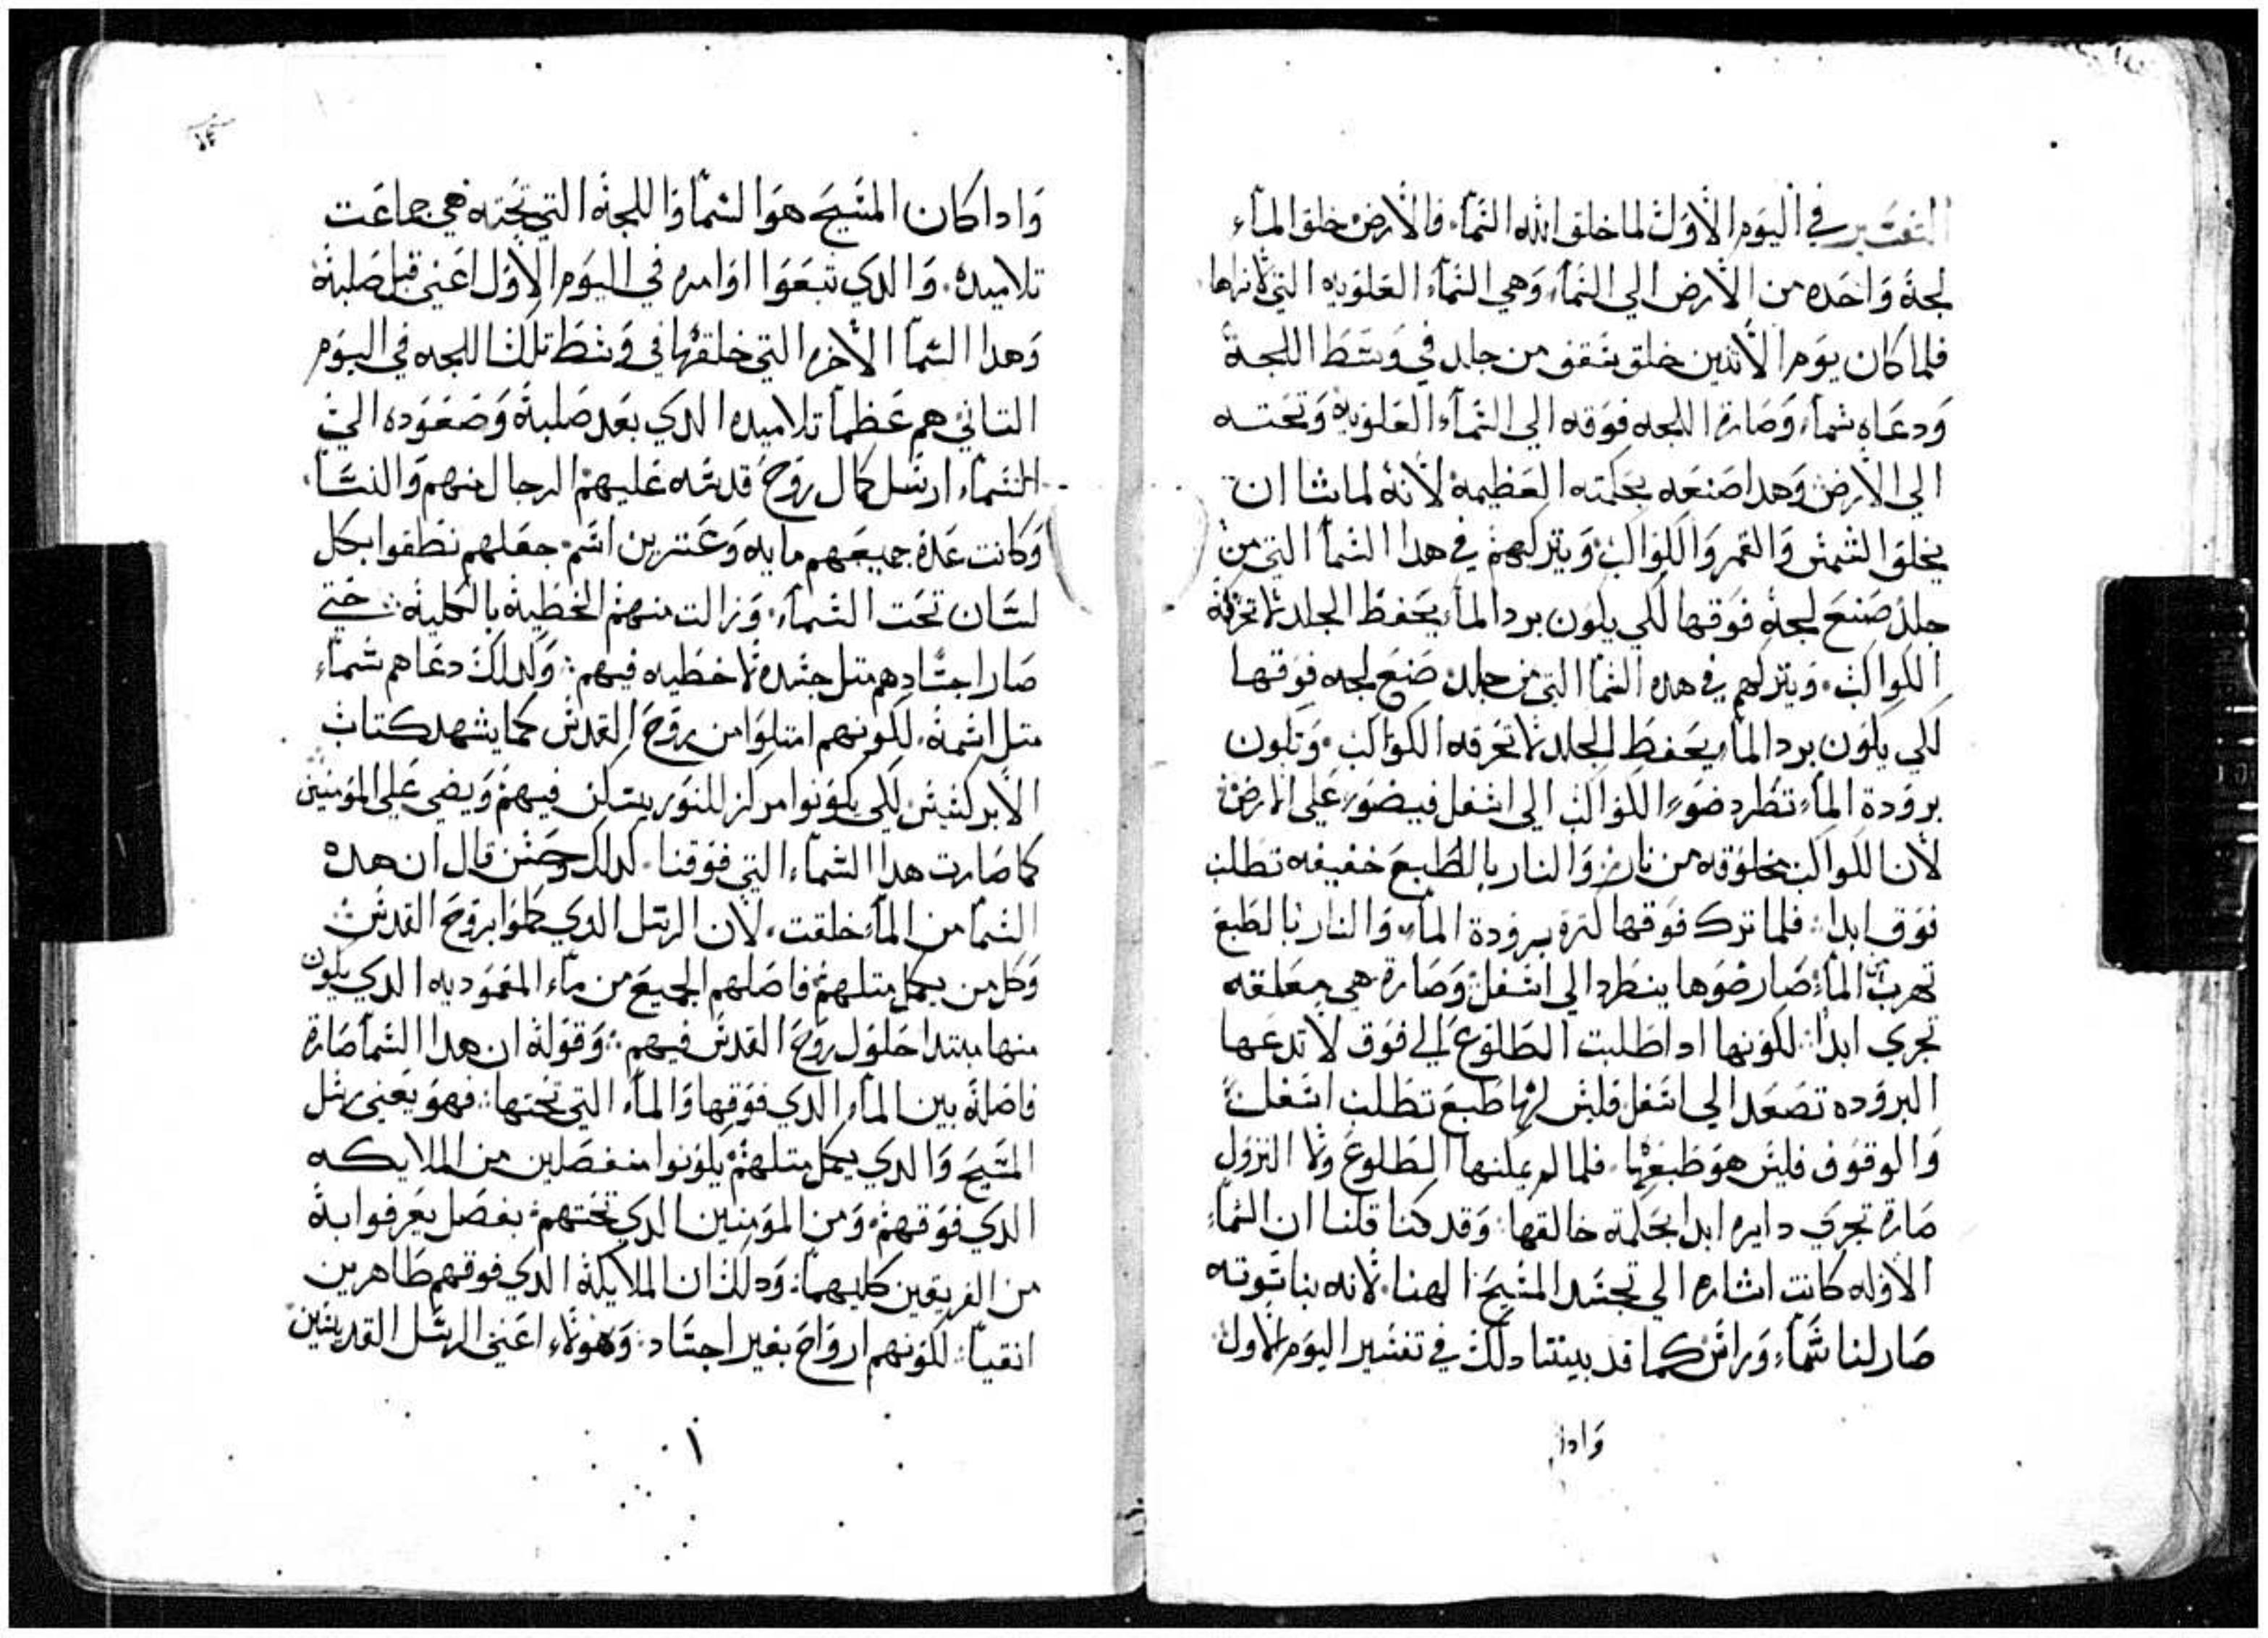 التفسير في اليوم الاول لما خلق الله السماء. فالارض خلق الماء
لجة واحده من الارض الي السماء وهي السماء العلويه التي لانراها
فلما كان يوم الاتنين خلق سقف من جلد في وسط اللجة
ودعاه سماء وصارة اللجه فوقه الي السماء العلوية وتحته
الي الارض وهدا صنعه بحكمته العظيمة لانه لما شا ان
يخلق الشمس والقمر والكواكب ويتركهم في هدا السما التي من
جلد صنع لجة فوقها لكي يكون برد الماء يحفظ الجلد لا تحرقة
الكواكب. ويتركهم في هده السما التي من جلد صنع لجه فوقها
لكي يكون برد الماء يحفظ الجلد لا تحرقه الكواكب. وتكون
برودة الماء تطرد ضوء الكواكب الي اسفل فيضور علي الارض
لان الكواكب مخلوقه من نار والنار بالطبع خفيفه تطلب
فوق ابدا. فلما ترك فوقها كترة برودة الماء والنار بالطبع
تهرب من الماء صار ضوها ينطرد الي اسفل وصارة هي معلقه
تجري ابدا لكونها ادا طلبت الطلوع الي فوق لا تدعها
البروده تصعد الي اسفل فليس لها طبع تطلب اسفل
والوقوف فليس هو طبعها. فلما لم يمكنها الطلوع ولا النزول
صارة تجري دايره ابدا بحكمة خالقها. وقد كنا قلنا ان السماء
الاوله كانت اشاره الي تجسد المسيح الهنا. لانه بناسوته
صار لنا سماء وراس كما قد بينتا دلك في تفسير اليوم الاول
وادا
وادا كان المسيح هو السما وا اللجة التي تحته هي جماعت
تلاميده. والدي تبعوا اوامره في اليوم الاول اعني قبل صلبة
وهدا السما الاخره التي خلقها في وسط تلك اللجه في اليوم
التاني هم عظما تلاميده الدي بعد صلبة وصعوده الي
السماء ارسل كمال روح قدسه عليهم الرجال منهم والنسا
وكانت عدة جميعهم مايه وعشرين اسم. جعلهم نطقوا بكل
لسان تحت السماء. وزالت منهم الخطية بالكلية. حتي
صار اجسادهم متل جسده لا خطيه فيهم. وكدلك دعاهم سماء
متل اسمة. لكونهم امتلوا من روح القدس كما يشهد كتاب
الابركسيس لكي يكونوا مركز للنور يسكن فيهم ويضي علي المومنين
كما صارت هدا السماء التي فوقنا. كدلك وحسن قال ان هده
السما من الماء خلقت. لان الرسل الدي كملوا بروح القدس
وكل من يعمل متلهم فاصلهم الجميع من ماء المعموديه الدي يكون
منها مبتدا حلول روح القدس فيهم. وقوله ان هدا السما صارة
فاصلة بين الماء الدي فوقها والماء التي تحتها. فهو يعني رسل
المسيح والدي يعمل متلهم يكونوا منفصلين من الملايكه
الدي فوقهم ومن المومنين الدي تحتهم. بفصل يعرفوا بة
من الفريقين كليهما. ودلك ان الملايكة الدي فوقهم طاهرين
انقيا. لكونهم ارواح بغير اجساد. وهولاء اعني الرسل القديسين